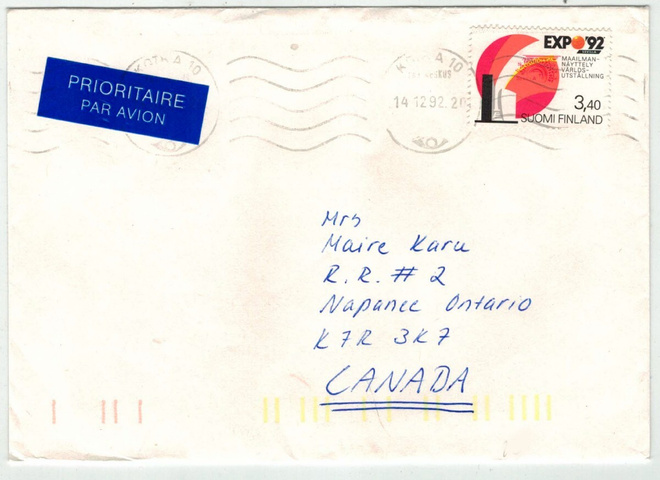 PRIORITAIRE
PAR AVION
KOTKA 10
KOTKA 10
14.12.92.
EXPO '92
SEVILLA
MAAILMAN-
NÄYTTELY
VÄRLDS-
UTSTÄLLNING
3,40
SUOMI FINLAND
Mrs
Maire Karu
R.R. # 2
Napanee Ontario
K7R 3K7
CANADA